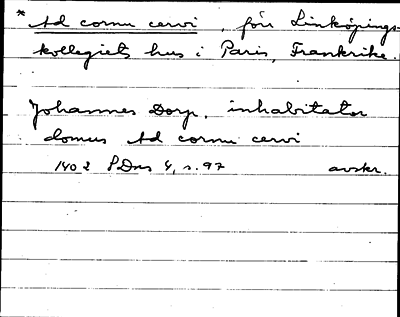 * Ad cornu cervi, förr Linköpings-
kollegiets hus i Paris, Frankrike.
Johannes Dorp, inhabitator
domus Ad cornu cervi
1402 SDns 4, s. 97 avskr.